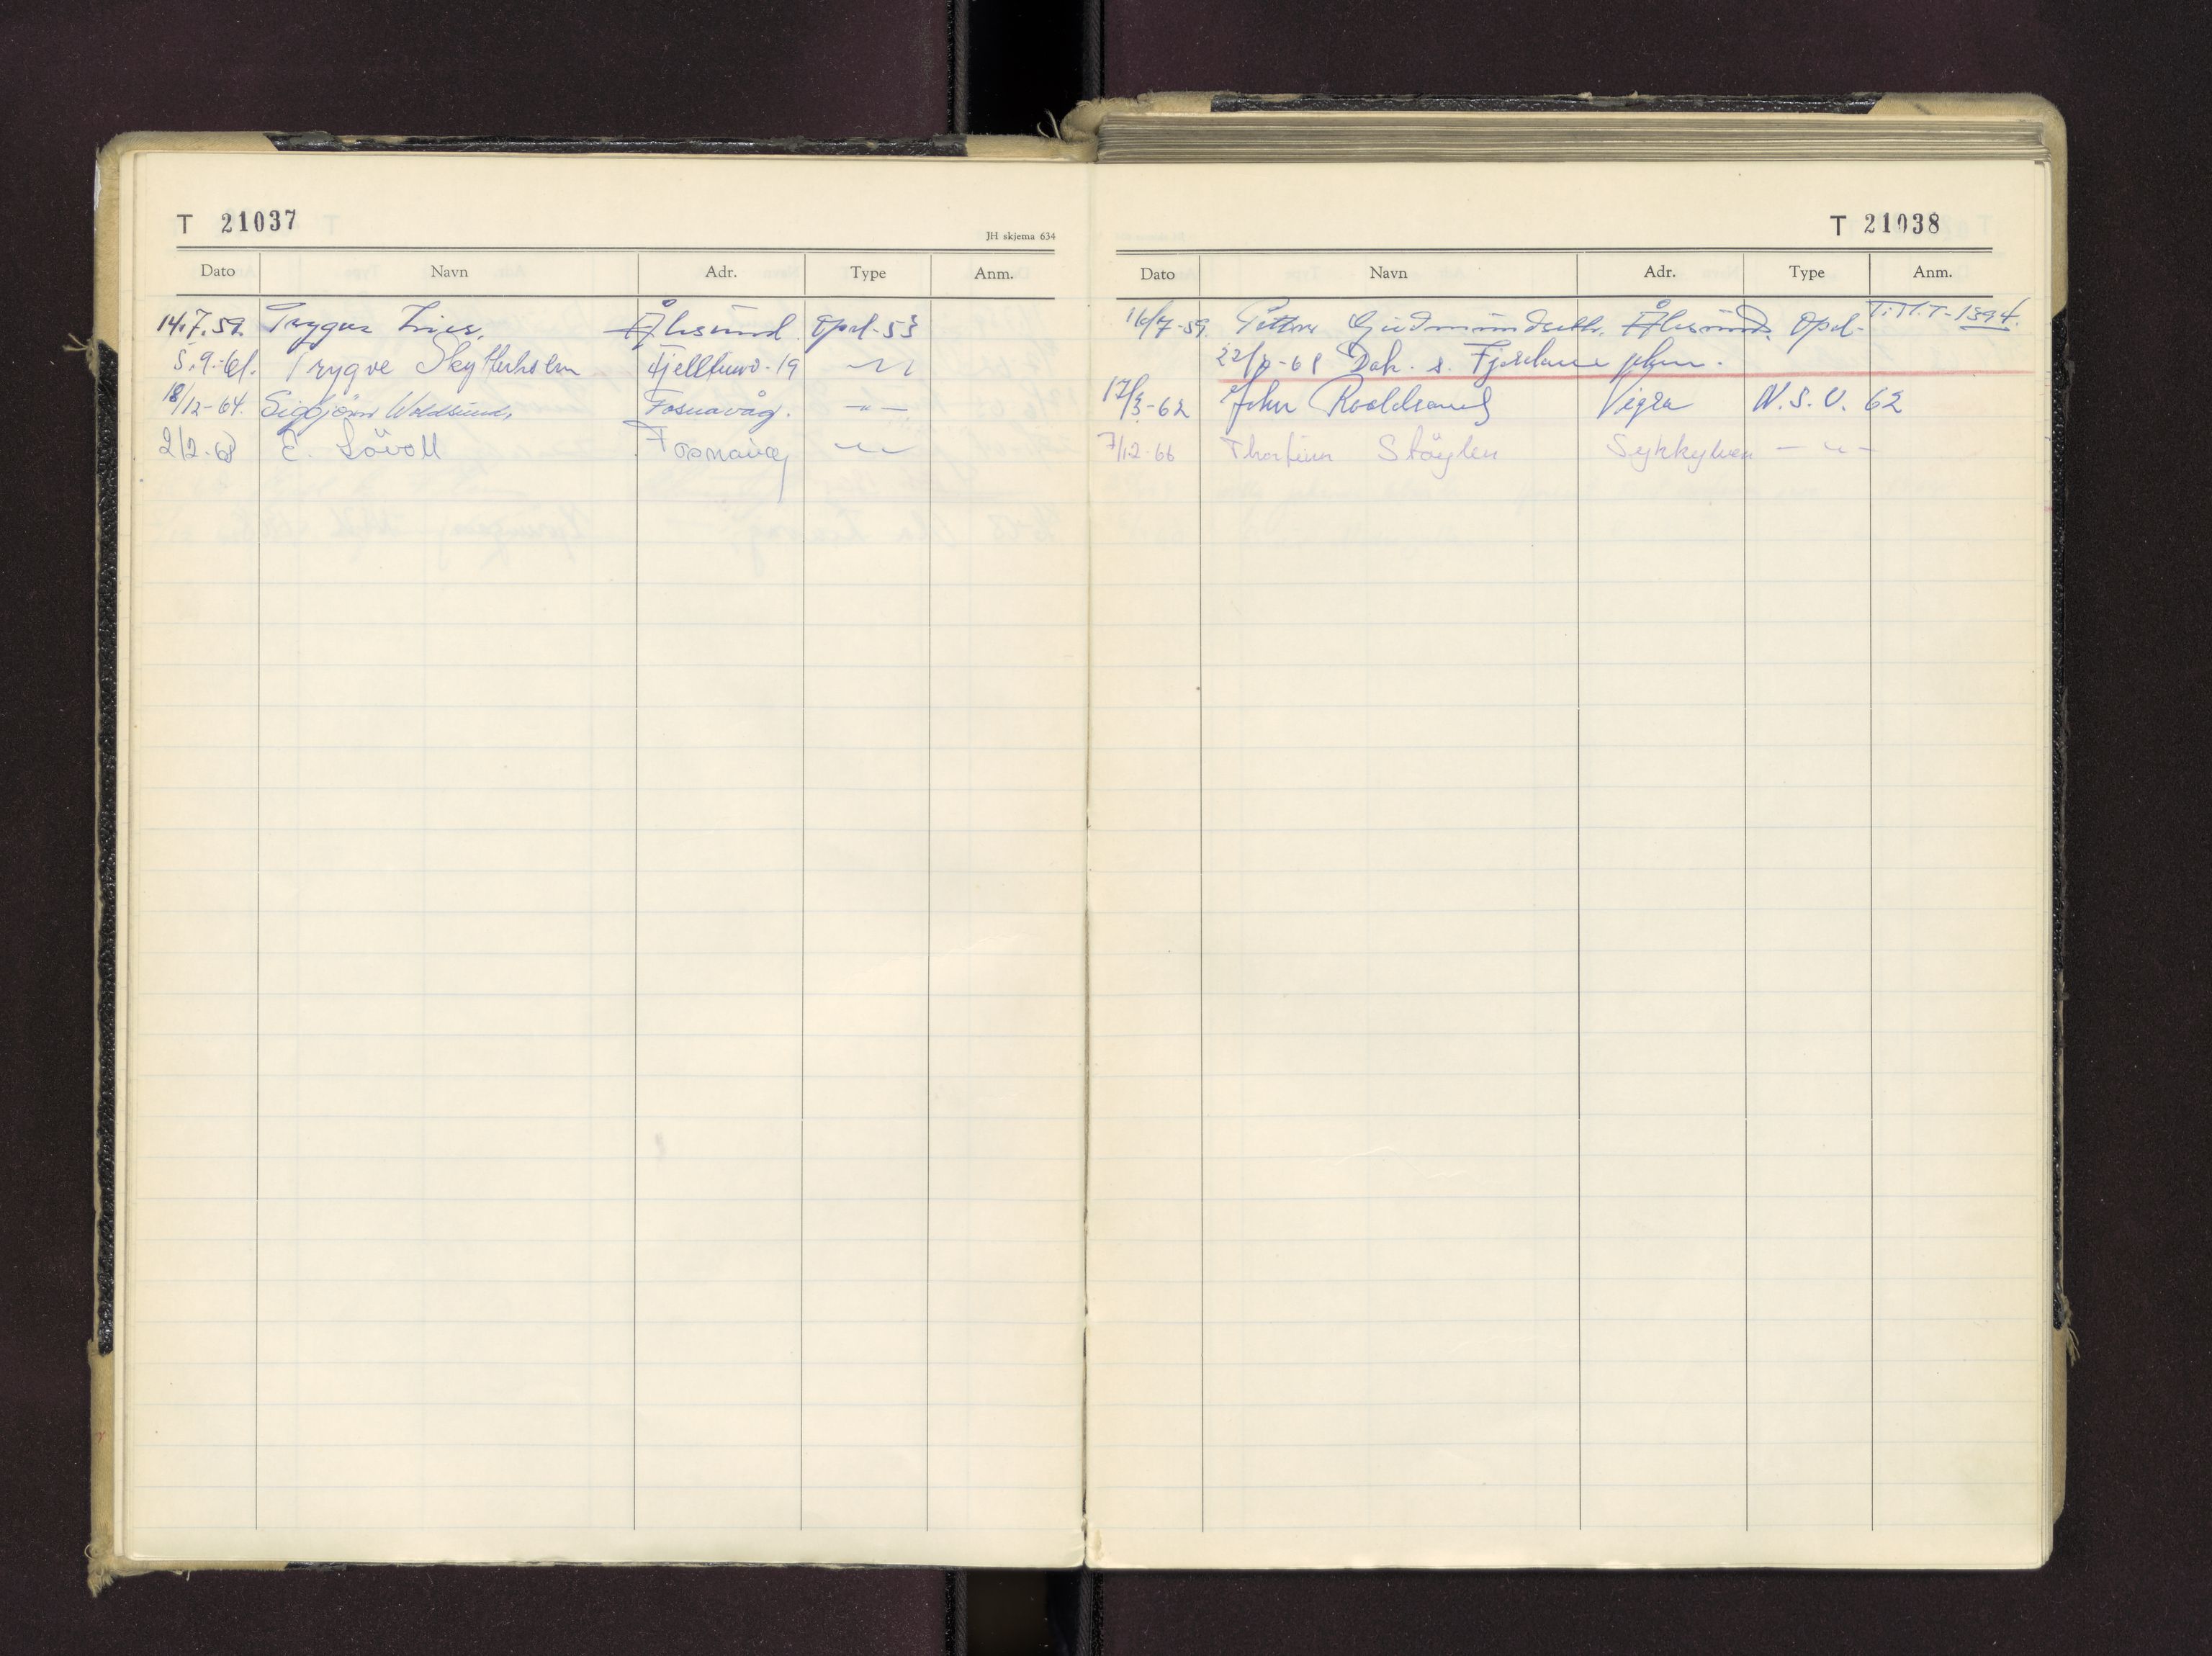 T 21037
JH skjema 634
Dato Navn Adr. Type Anm.
14.7.59. Trygve Ålesund. Opel-53
5.9.-61. Trygve Skytterholm Fjelltunv. 19 —"—
18/12-64. Sigbjörn Voldsund, Fosnavåg. —"—
2/2-68 E. Lövoll Fosnavåg —"—
T 21038
Dato Navn Adr. Type Anm.
16/7-59. Petter Gudmundseth, Ålesund. Opel- T.M.T-1394.
22/8-61 Dek. s. Fjordane
17/3-62 John Roaldsand Vigra N.S.U. 62
7/12-66 Thorfinn Stöylen Sykkylven —"—